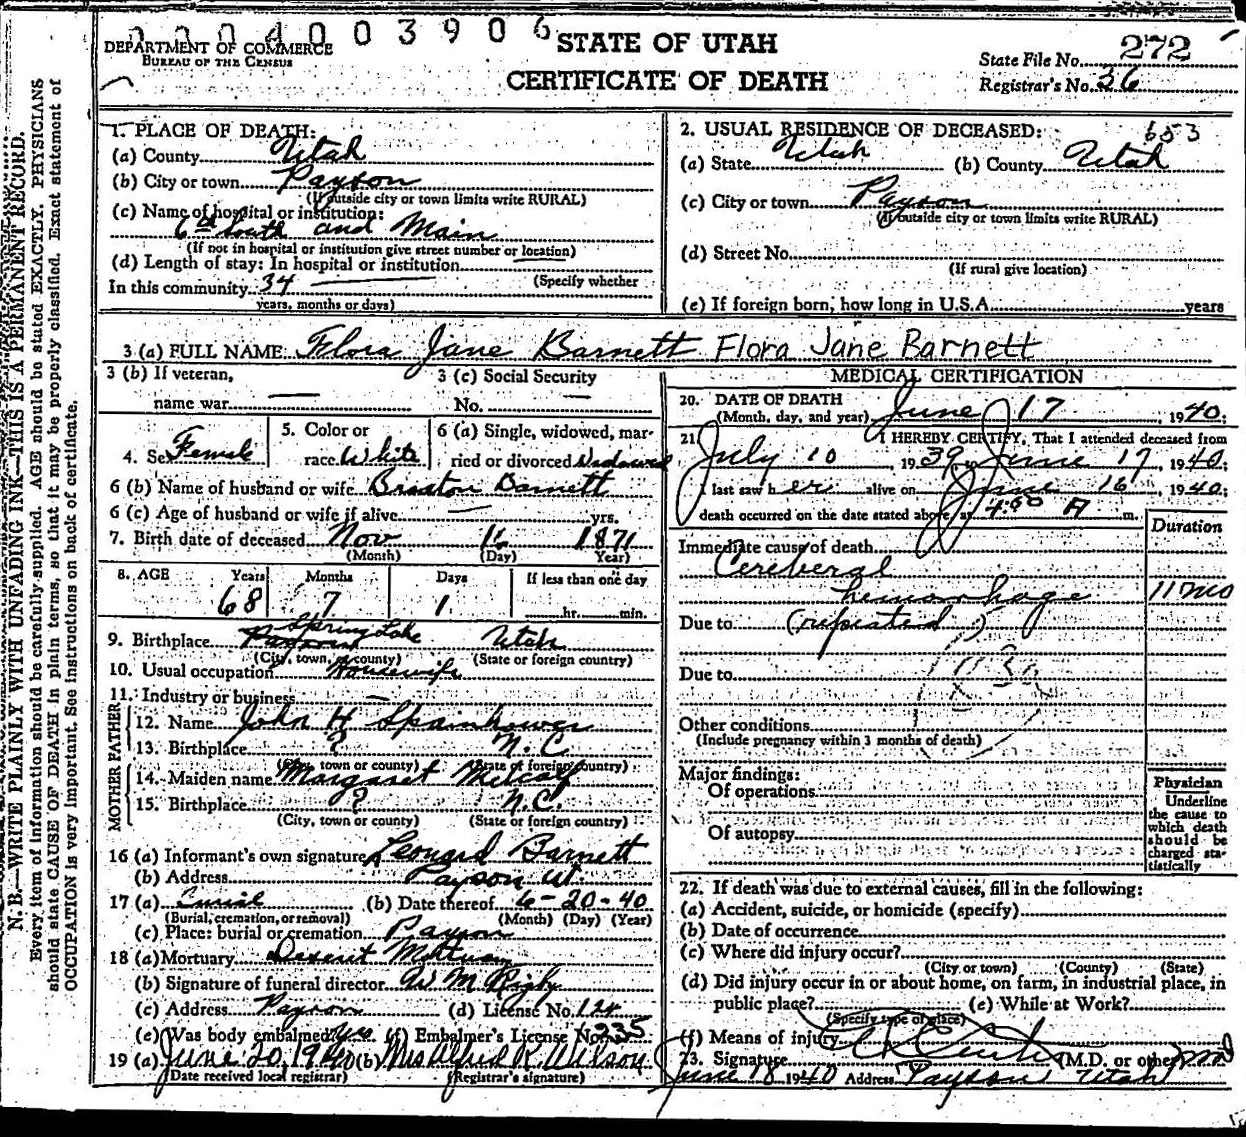 0004003906
DEPARTMENT OF COMMERCE
BUREAU OF THE CENSUS
STATE OF UTAH
CERTIFICATE OF DEATH
State File No. 272
Registrar's No. 36
N. B.—WRITE PLAINLY WITH UNFADING INK—THIS IS A PERMANENT RECORD.
Every item of information should be carefully supplied. AGE should be stated EXACTLY. PHYSICIANS
should state CAUSE OF DEATH in plain terms, so that it may be properly classified. Exact statement of
OCCUPATION is very important. See instructions on back of certificate.
1. PLACE OF DEATH:
(a) County Utah
(b) City or town Payson
(If outside city or town limits write RURAL)
(c) Name of hospital or institution:
6th South and Main
(If not in hospital or institution give street number or location)
(d) Length of stay: In hospital or institution
(Specify whether
In this community 34
years, months or days)
2. USUAL RESIDENCE OF DECEASED: 653
(a) State Utah (b) County Utah
(c) City or town Payson
(If outside city or town limits write RURAL)
(d) Street No.
(If rural give location)
(e) If foreign born, how long in U.S.A. years
3 (a) FULL NAME: Flora Jane Barnett Flora Jane Barnett
3 (b) If veteran,
name war —
3 (c) Social Security
No. —
4. Sex Female
5. Color or
race White
6 (a) Single, widowed, mar-
ried or divorced Widowed
6 (b) Name of husband or wife Braxton Barnett
6 (c) Age of husband or wife if alive — yrs.
7. Birth date of deceased Nov 16 1871
(Month) (Day) Year)
8. AGE Years Months Days If less than one day
68 7 1 hr. min.
9. Birthplace Spring Lake Utah
(City, town, or county) (State or foreign country)
10. Usual occupation Housewife
11. Industry or business —
FATHER
12. Name John H Spainhower
13. Birthplace ? N. C
(City, town or county) (State of foreign country)
MOTHER
14. Maiden name Margaret Metcalf
15. Birthplace ? N.C.
(City, town or county) (State or foreign country)
16 (a) Informant's own signature Leonard Barnett
(b) Address Payson Ut.
17 (a) Burial (b) Date thereof 6-20-40
(Burial, cremation, or removal) (Month) (Day) (Year)
(c) Place: burial or cremation Payson
18 (a) Mortuary Deseret Mortuary
(b) Signature of funeral director W M Rigby
(c) Address Payson (d) License No. 124
(e) Was body embalmed yes (f) Embalmer's License No. 235
19 (a) June 20, 1940 (b) Mrs Alfred R. Wilson
(Date received local registrar) (Registrar's signature)
MEDICAL CERTIFICATION
20. DATE OF DEATH
(Month, day, and year) June 17, 1940;
21. I HEREBY CERTIFY, That I attended deceased from
July 10, 1939, to June 17, 1940;
I last saw her alive on June 16, 1940;
death occurred on the date stated above, at 4:50 A m.
Duration
Immediate cause of death
Cereberal
hemorrhage 11 mo
Due to (repeated)
Due to
Other conditions
(Include pregnancy within 3 months of death)
Major findings:
Of operations
Of autopsy
Physician
Underline
the cause to
which death
should be
charged sta-
tistically
22. If death was due to external causes, fill in the following:
(a) Accident, suicide, or homicide (specify)
(b) Date of occurrence
(c) Where did injury occur?
(City or town) (County) (State)
(d) Did injury occur in or about home, on farm, in industrial place, in
public place? (e) While at Work?
(Specify type of place)
(f) Means of injury
23. Signature (M.D. or other) MD
June 18 1940 Address Payson Utah